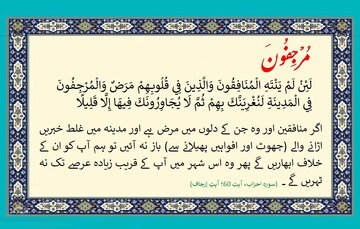 مُرجِفُونَ
لَئِنْ لَمْ يَنْتَهِ الْمُنَافِقُونَ وَالَّذِينَ فِي قُلُوبِهِمْ مَرَضٌ وَالْمُرْجِفُونَ
فِي الْمَدِينَةِ لَنُغْرِيَنَّكَ بِهِمْ ثُمَّ لَا يُجَاوِرُونَكَ فِيهَا إِلَّا قَلِيلًا
اگر منافقین اور وہ جن کے دلوں میں مرض ہے اور مدینہ میں غلط خبریں
اڑانے والے (جھوٹ اور افواہیں پھیلانے سے) باز نہ آئیں تو ہم آپ کو ان کے
خلاف ابھاریں گے پھر وہ اس شہر میں آپ کے قریب زیادہ عرصے تک نہ
ٹہریں گے ۔ (سورہ احزاب، آیت 60؛ آیت إرجاف)